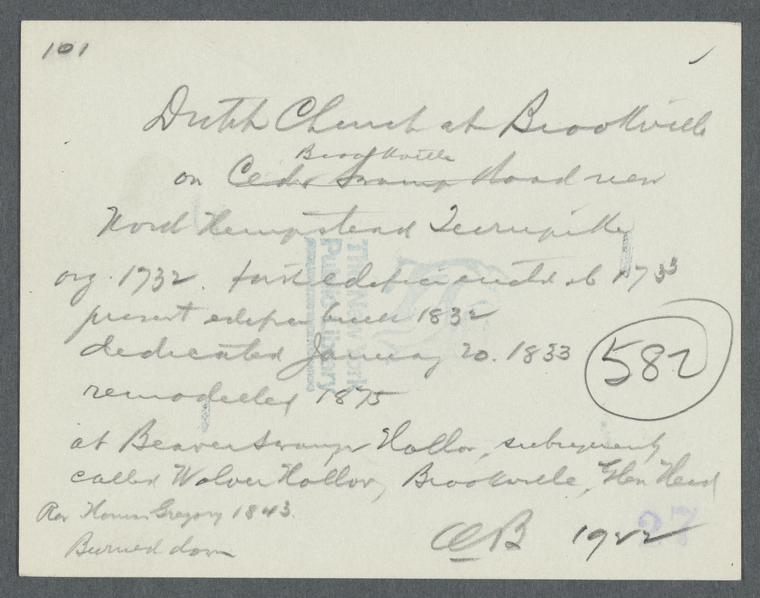 101
Dutch Church at Brookville
Brookville
on Cedar Swamp Road near
North Hempstead Turnpike
org. 1732. first edifice erected ab 1733
present edifice built 1832
dedicated January 20. 1833
582
remodeled 1875
at Beaver Swamp Hollow, subsequently
called Wolver Hollow, Brookville, Glen Head
Rev Gregory 1843.
Burned down
1922
27
The New York
Public Library